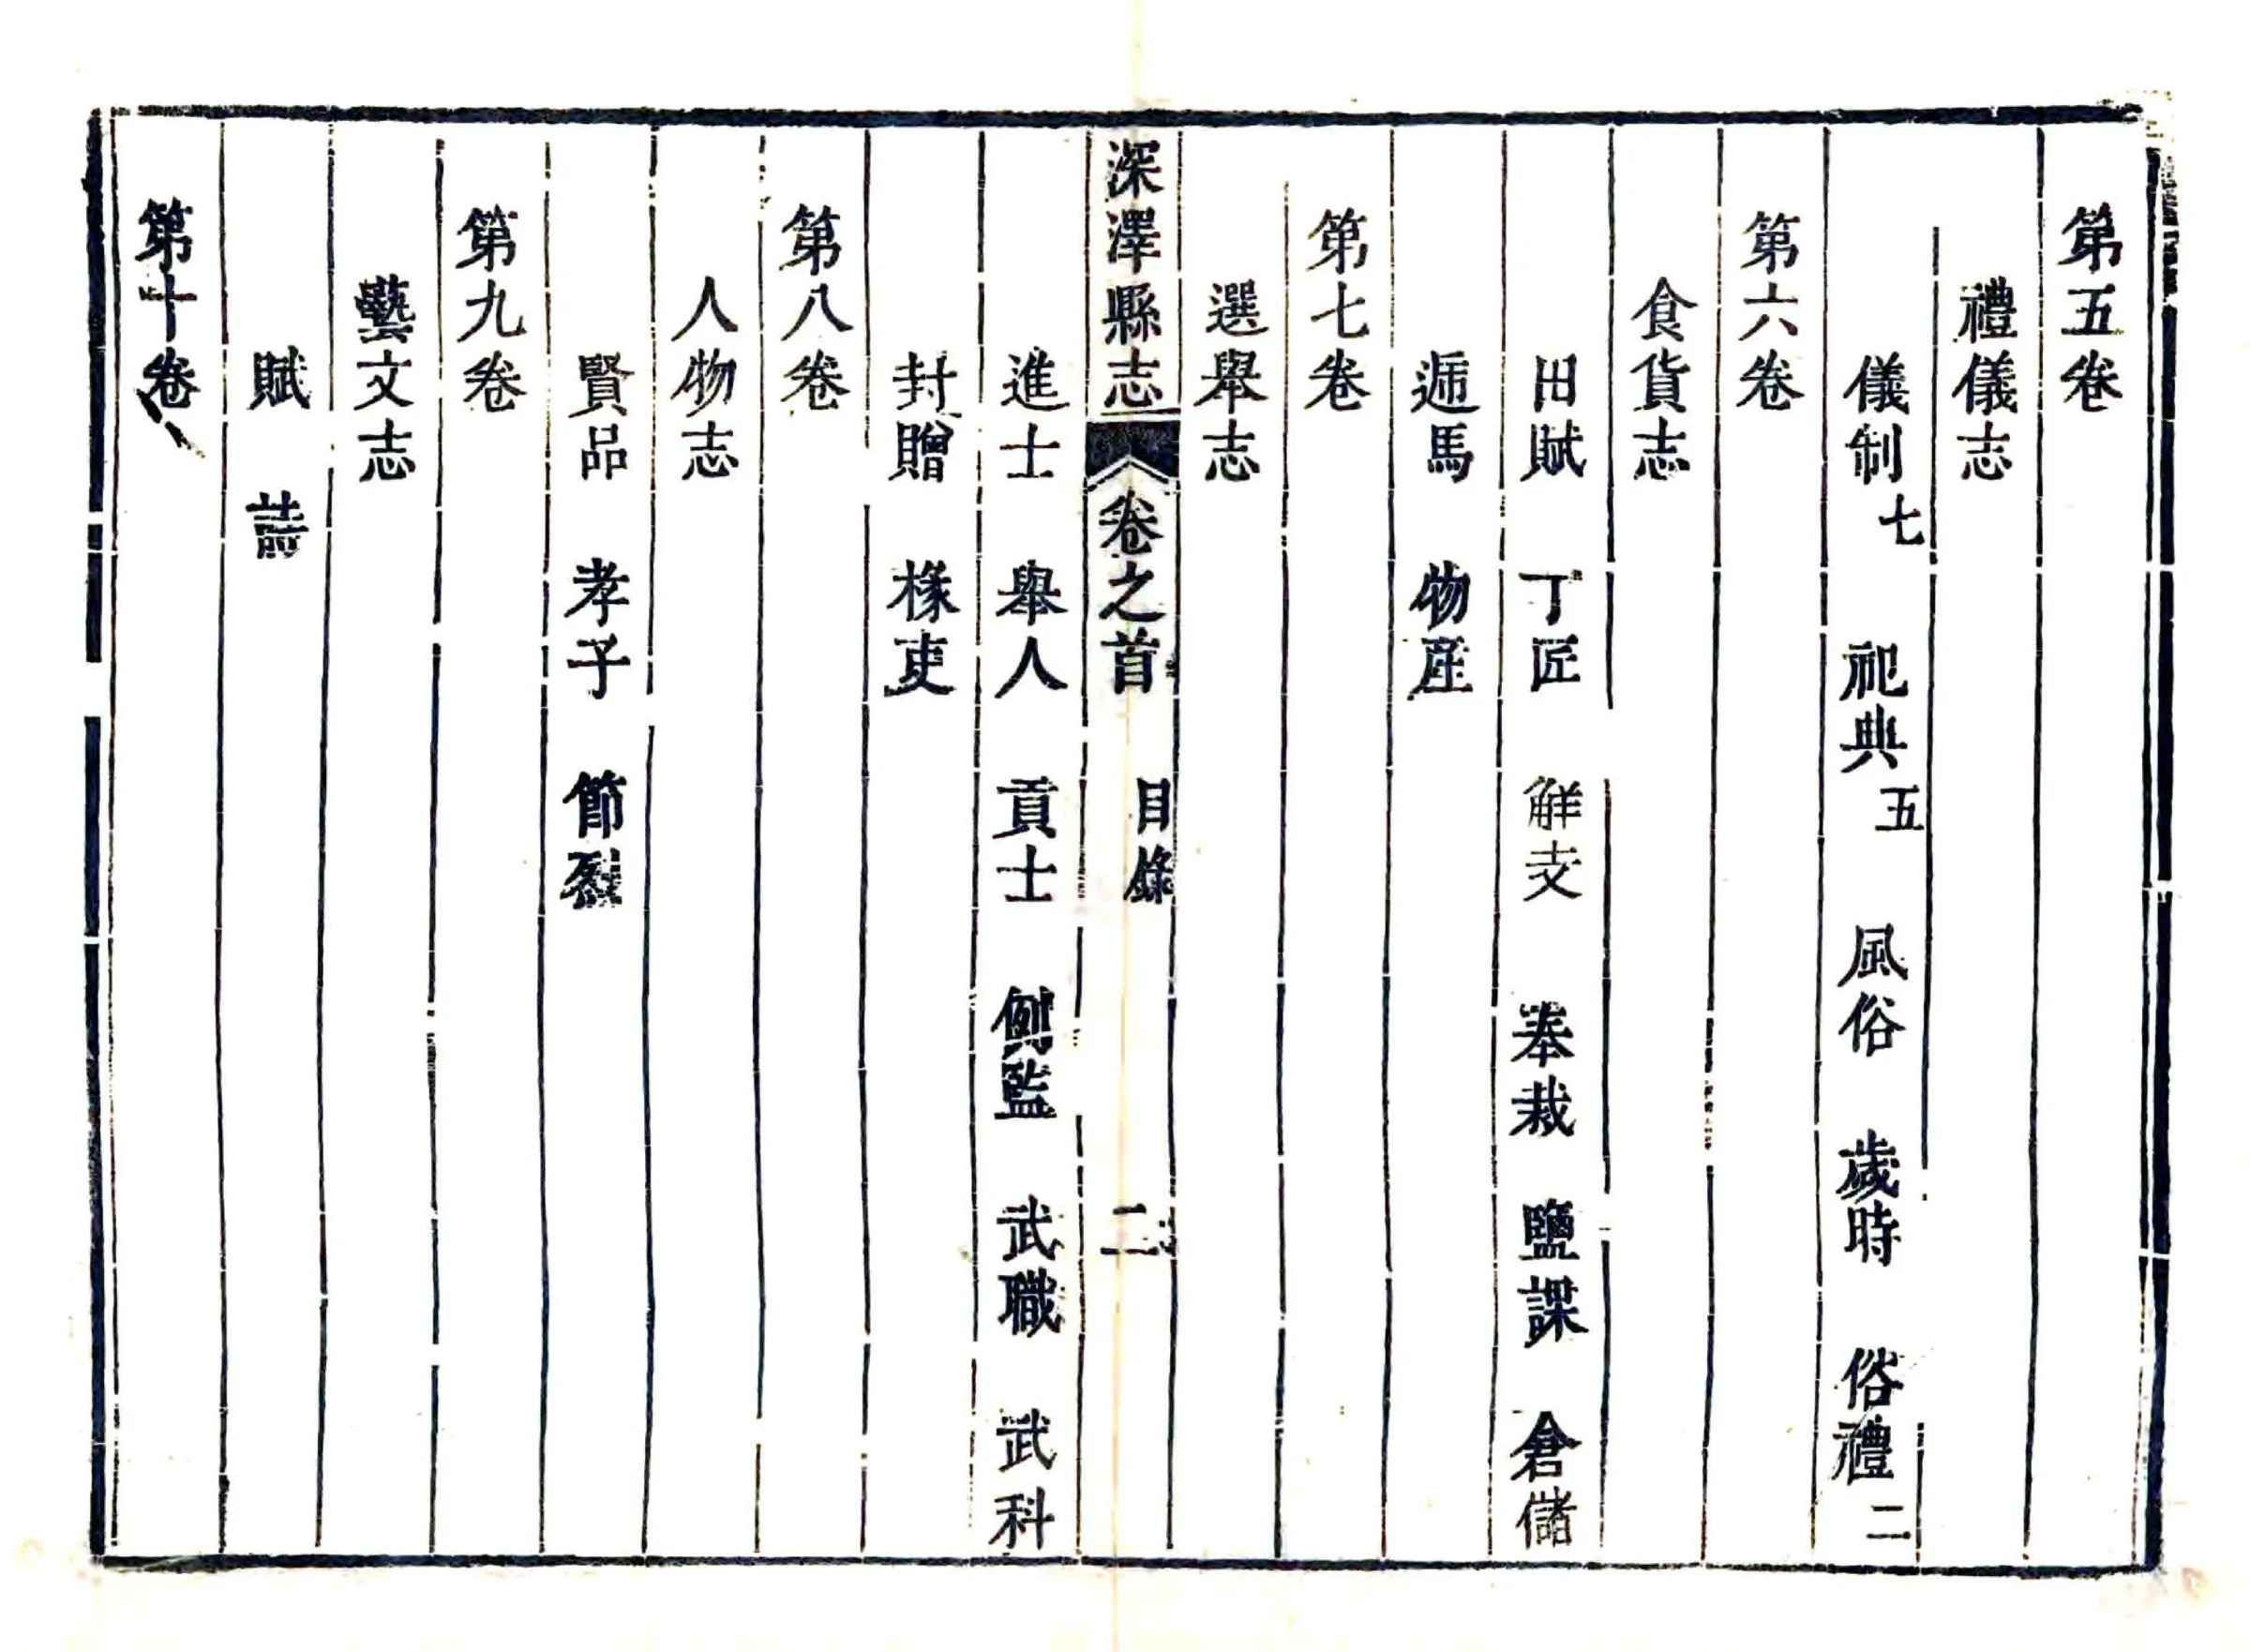 第五卷
禮儀志
儀制七 祀典五 風俗 歲時 俗禮二
第六卷
食貨志
田賦 丁匠 解支 奉裁 鹽課 倉儲
逓馬 物產
第七卷
選舉志
深澤縣志 卷之首 目錄 二
進士 舉人 貢士 例監 武職 武科
封贈 椽吏
第八卷
人物志
賢品 孝子 節烈
第九卷
藝文志
賦 詩
第十卷